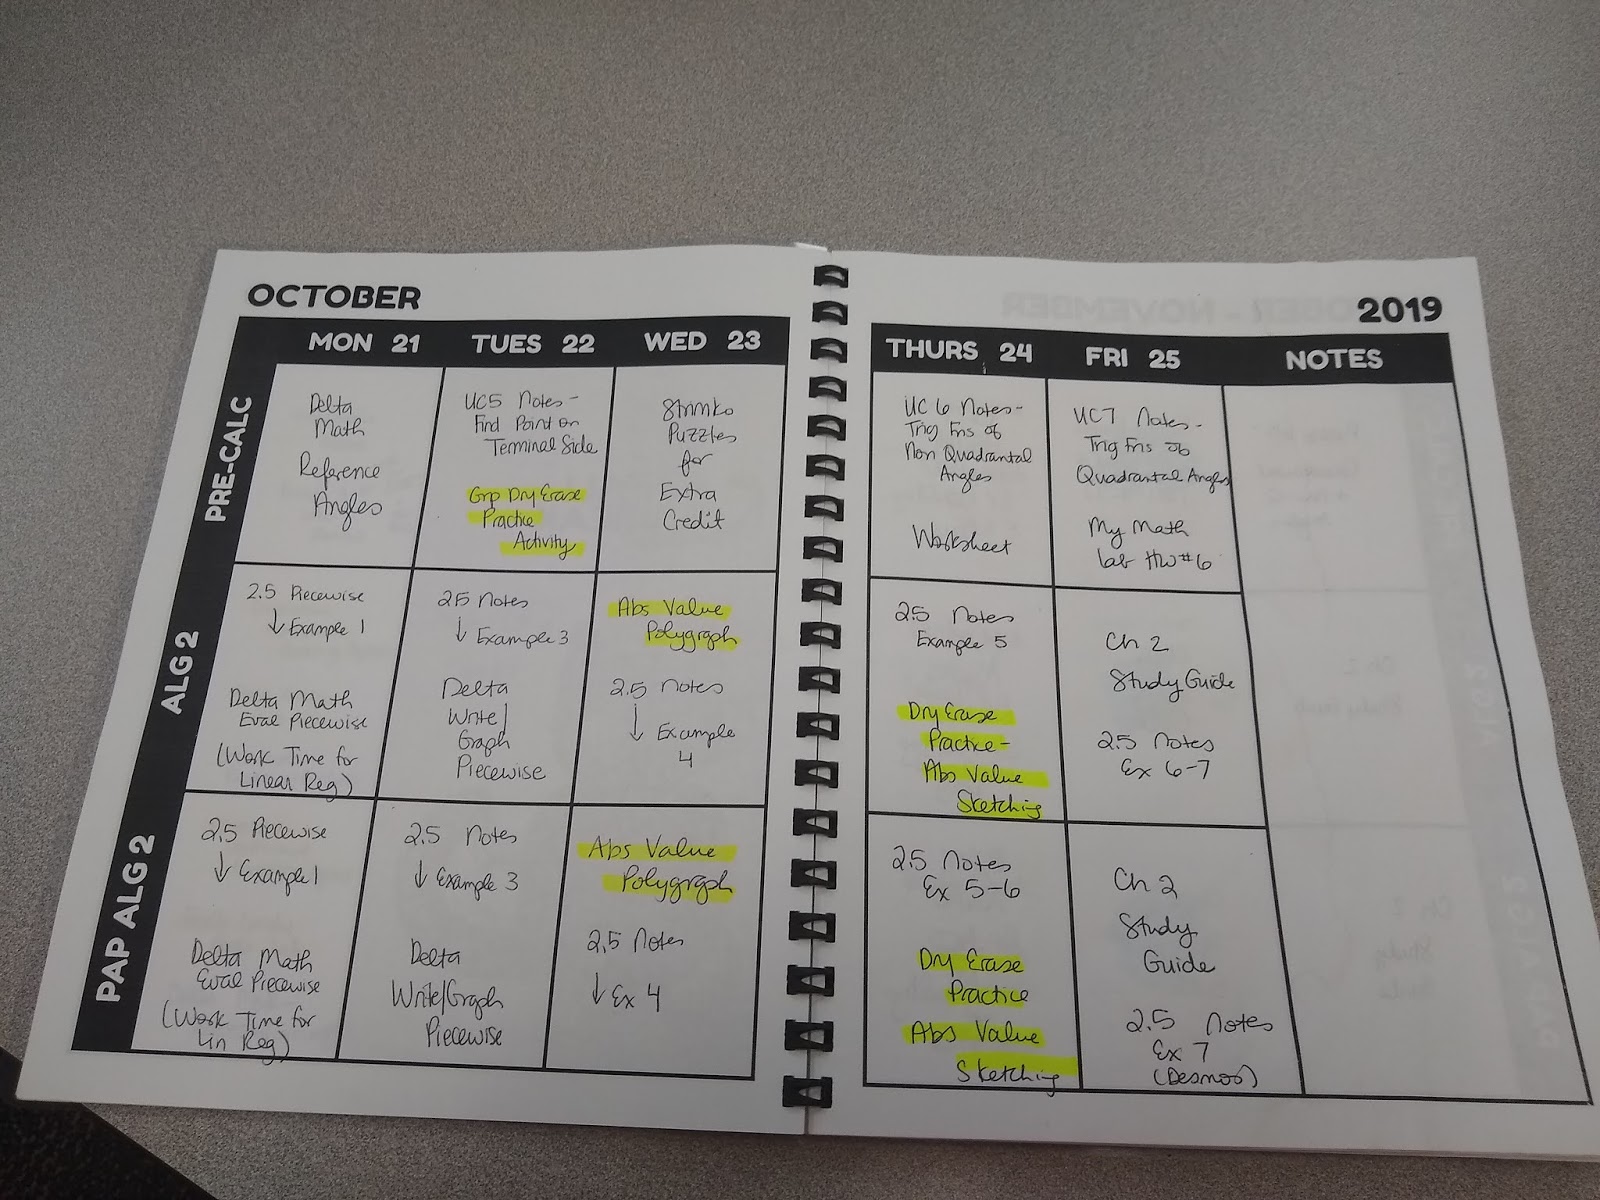 OCTOBER
2019
MON 21
TUES 22
WED 23
THURS 24
FRI 25
NOTES
PRE-CALC
Delta
Math
Reference
Angles
UC5 Notes -
Find Point on
Terminal Side
Grp Dry Erase
Practice
Activity
Strimko
Puzzles
for
Extra
Credit
UC 6 Notes -
Trig Fns of
Non Quadrantal
Angles
Worksheet
UC7 Notes -
Trig Fns of
Quadrantal Angles
My Math
Lab HW #6
ALG 2
2.5 Piecewise
↓ Example 1
Delta Math
Eval Piecewise
(Work Time for
Linear Reg)
2.5 Notes
↓ Example 3
Delta
Write/
Graph
Piecewise
Abs Value
Polygraph
2.5 Notes
↓ Example
4
2.5 Notes
Example 5
Dry Erase
Practice -
Abs Value
Sketching
Ch 2
Study Guide
2.5 Notes
Ex 6-7
PAP ALG 2
2.5 Piecewise
↓ Example 1
Delta Math
Eval Piecewise
(Work Time for
Lin Reg)
2.5 Notes
↓ Example 3
Delta
Write/Graph
Piecewise
Abs Value
Polygraph
2.5 Notes
↓ Ex 4
2.5 Notes
Ex 5-6
Dry Erase
Practice
Abs Value
Sketching
Ch 2
Study
Guide
2.5 Notes
Ex 7
(Desmos)